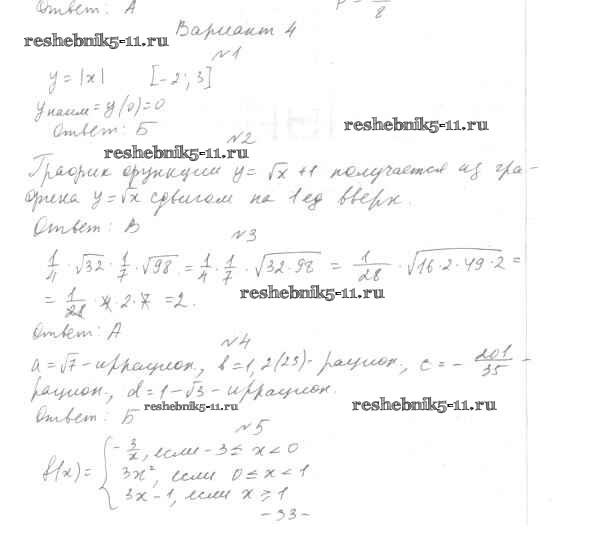 Ответ: А
8
Вариант 4
reshebnik5-11.ru
№1
y = |x| [-2; 3]
yнаим = y(0) = 0
Ответ: Б
reshebnik5-11.ru
№2
reshebnik5-11.ru
График функции y = √x + 1 получается из гра-
фика y = √x сдвигом на 1 ед вверх.
Ответ: В
№3
1/4 · √32 · 1/7 · √98 = 1/4 · 1/7 · √32·98 = 1/28 · √16·2·49·2 =
= 1/28 · 4 · 2 · 7 = 2.
reshebnik5-11.ru
Ответ: А
№4
a = √7 - иррацион., b = 1,2(23) - рацион., c = - 201/35 -
рацион., d = 1 - √3 - иррацион.
Ответ: Б
reshebnik5-11.ru
reshebnik5-11.ru
№5
f(x) = { -3/x, если -3 ≤ x < 0
3x², если 0 ≤ x < 1
3x - 1, если x ≥ 1
-33-